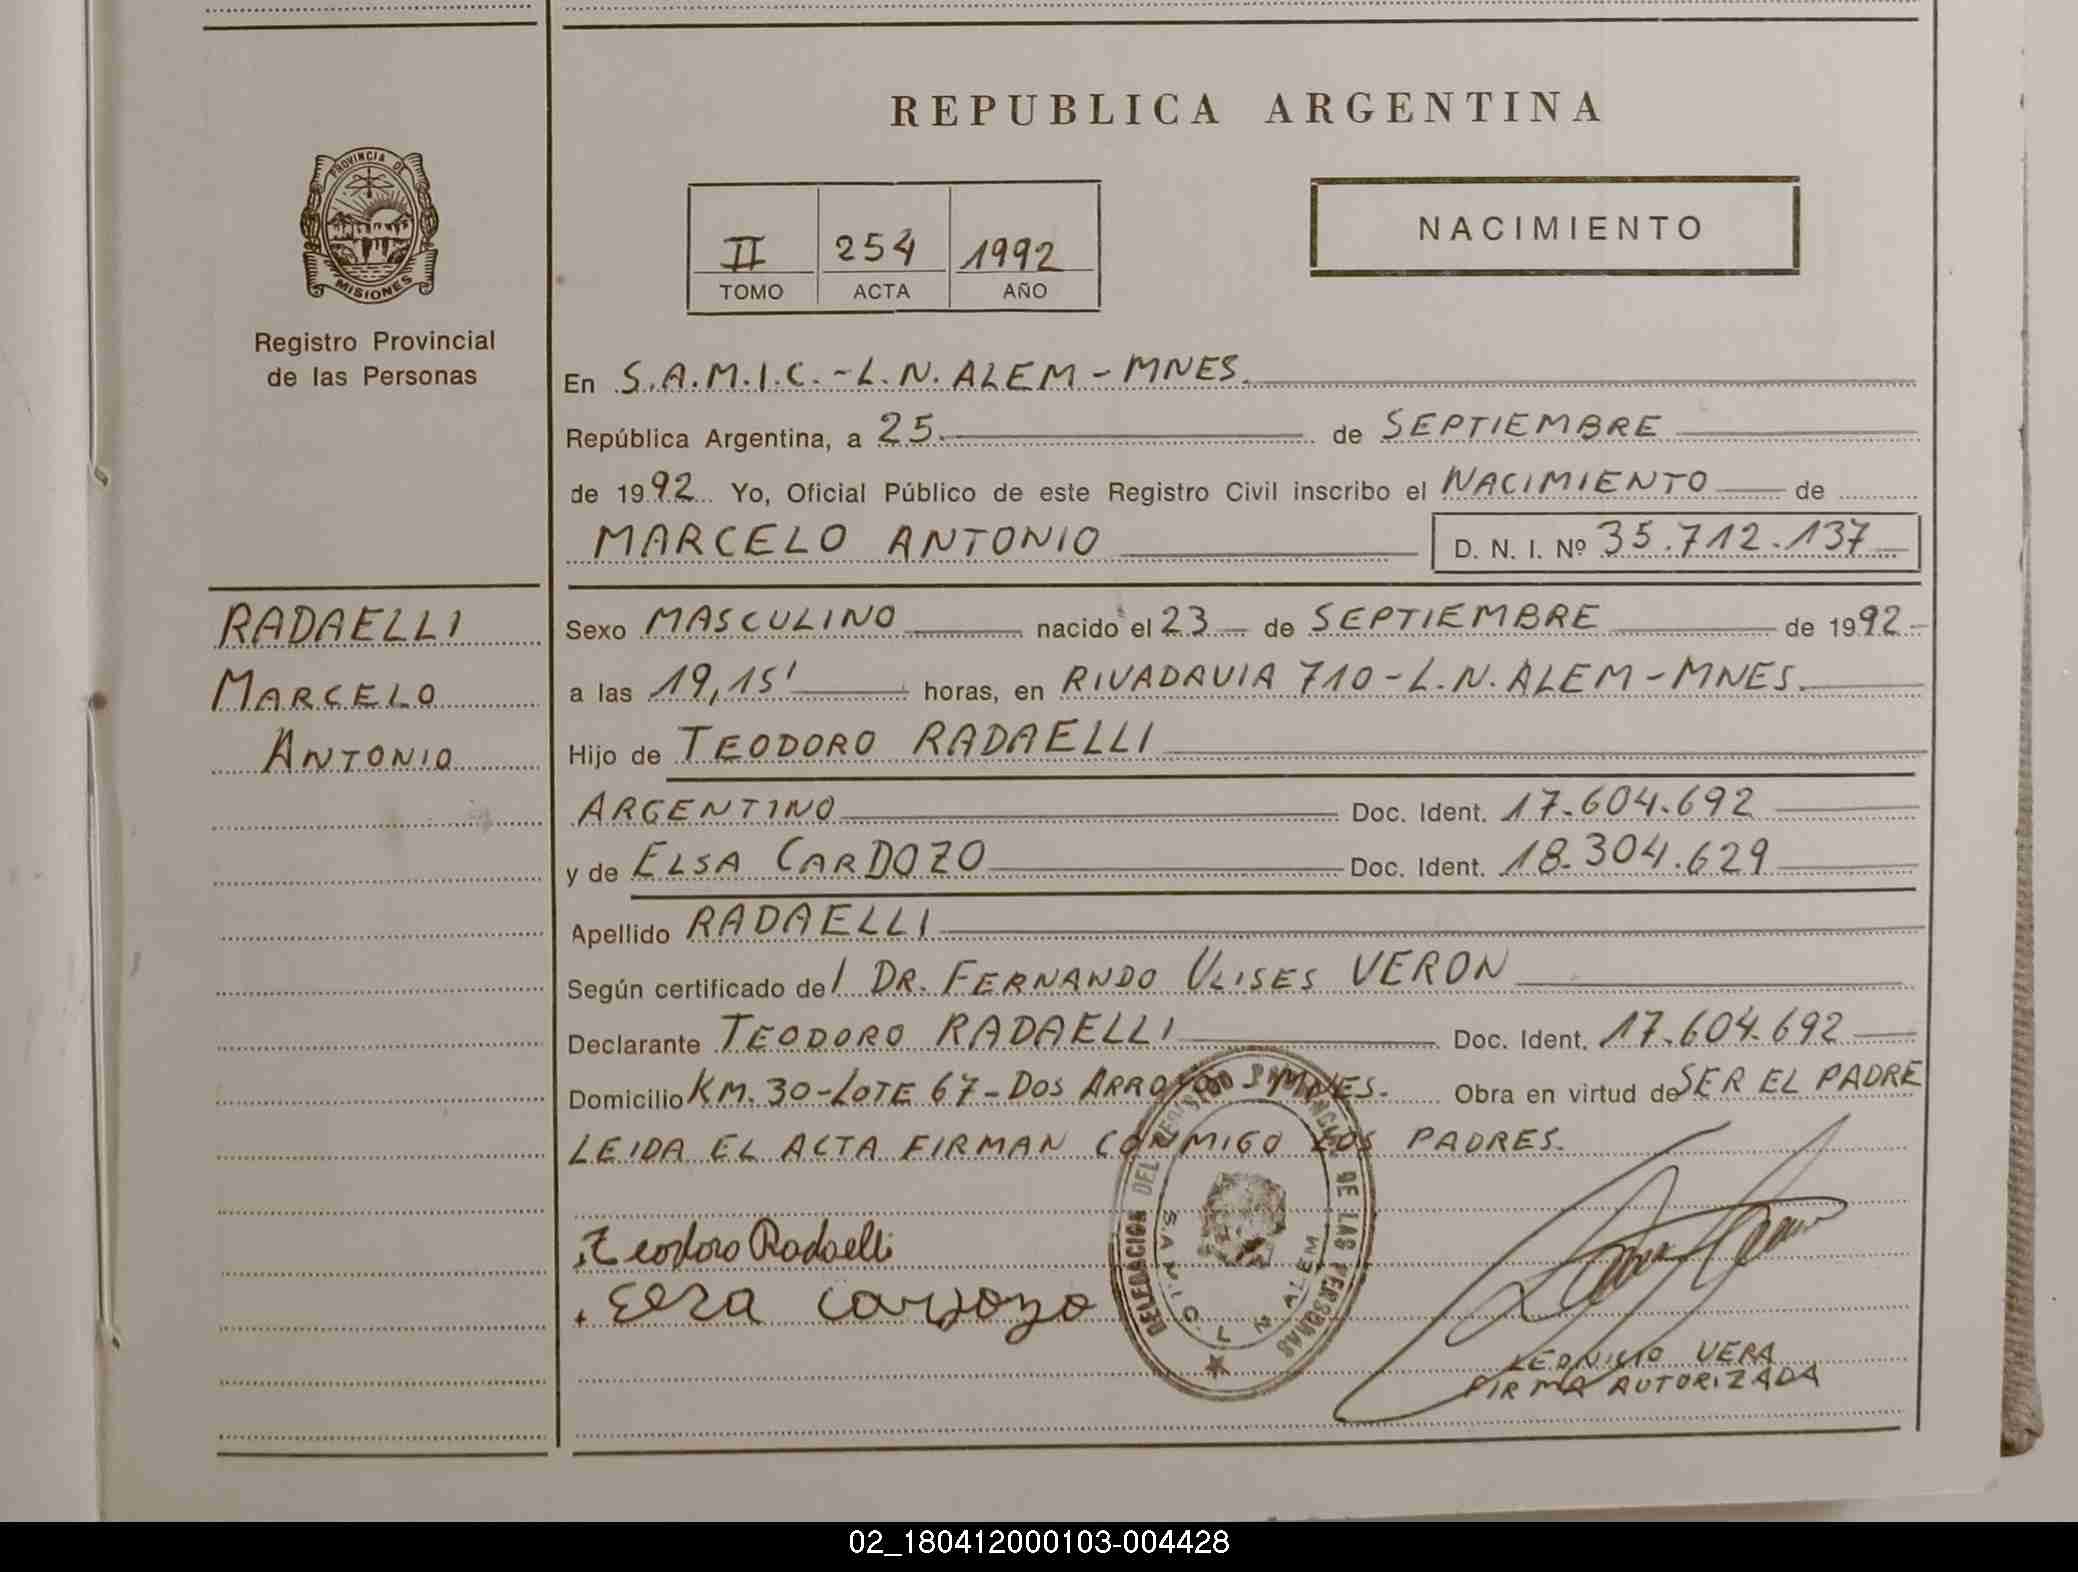 REPUBLICA ARGENTINA
PROVINCIA DE
MISIONES
Registro Provincial
de las Personas
II 254 1992
TOMO ACTA AÑO
NACIMIENTO
En S.A.M.I.C.-L.N. ALEM-MNES.
República Argentina, a 25. de SEPTIEMBRE
de 1992 Yo, Oficial Público de este Registro Civil inscribo el NACIMIENTO de
MARCELO ANTONIO D. N. I. Nº 35.712.137
RADAELLI
MARCELO
ANTONIO
Sexo MASCULINO nacido el 23 de SEPTIEMBRE de 1992
a las 19,15' horas, en RIVADAVIA 710-L.N. ALEM-MNES.
Hijo de TEODORO RADAELLI
ARGENTINO Doc. Ident. 17.604.692
y de ELSA CARDOZO Doc. Ident. 18.304.629
Apellido RADAELLI
Según certificado del DR. FERNANDO ULISES VERON
Declarante TEODORO RADAELLI Doc. Ident. 17.604.692
Domicilio KM. 30-LOTE 67-DOS ARROYOS-MNES. Obra en virtud de SER EL PADRE
LEIDA EL ACTA FIRMAN CONMIGO LOS PADRES.
Teodoro Radaelli
Elsa Cardozo
DELEGACION DEL REGISTRO PROVINCIAL DE LAS PERSONAS
S.A.M.I.C. L N ALEM
LEONICIO VERA
FIRMA AUTORIZADA
02_180412000103-004428